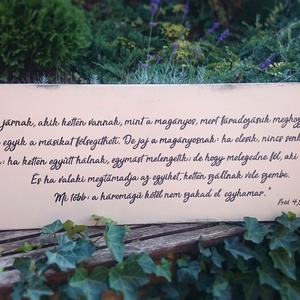 járnak, akik ketten vannak, mint a magányos, mert fáradozásuk meghoz
egyik a másikat fölsegítheti. De jaj a magányosnak: ha elesik, nincs senk
: ha ketten együtt hálnak, egymást melengetik; de hogy melegedne föl, aki
És ha valaki megtámadja az egyiket, ketten szállnak vele szembe.
Mi több: a háromágú kötél nem szakad el egyhamar."
Préd 4,